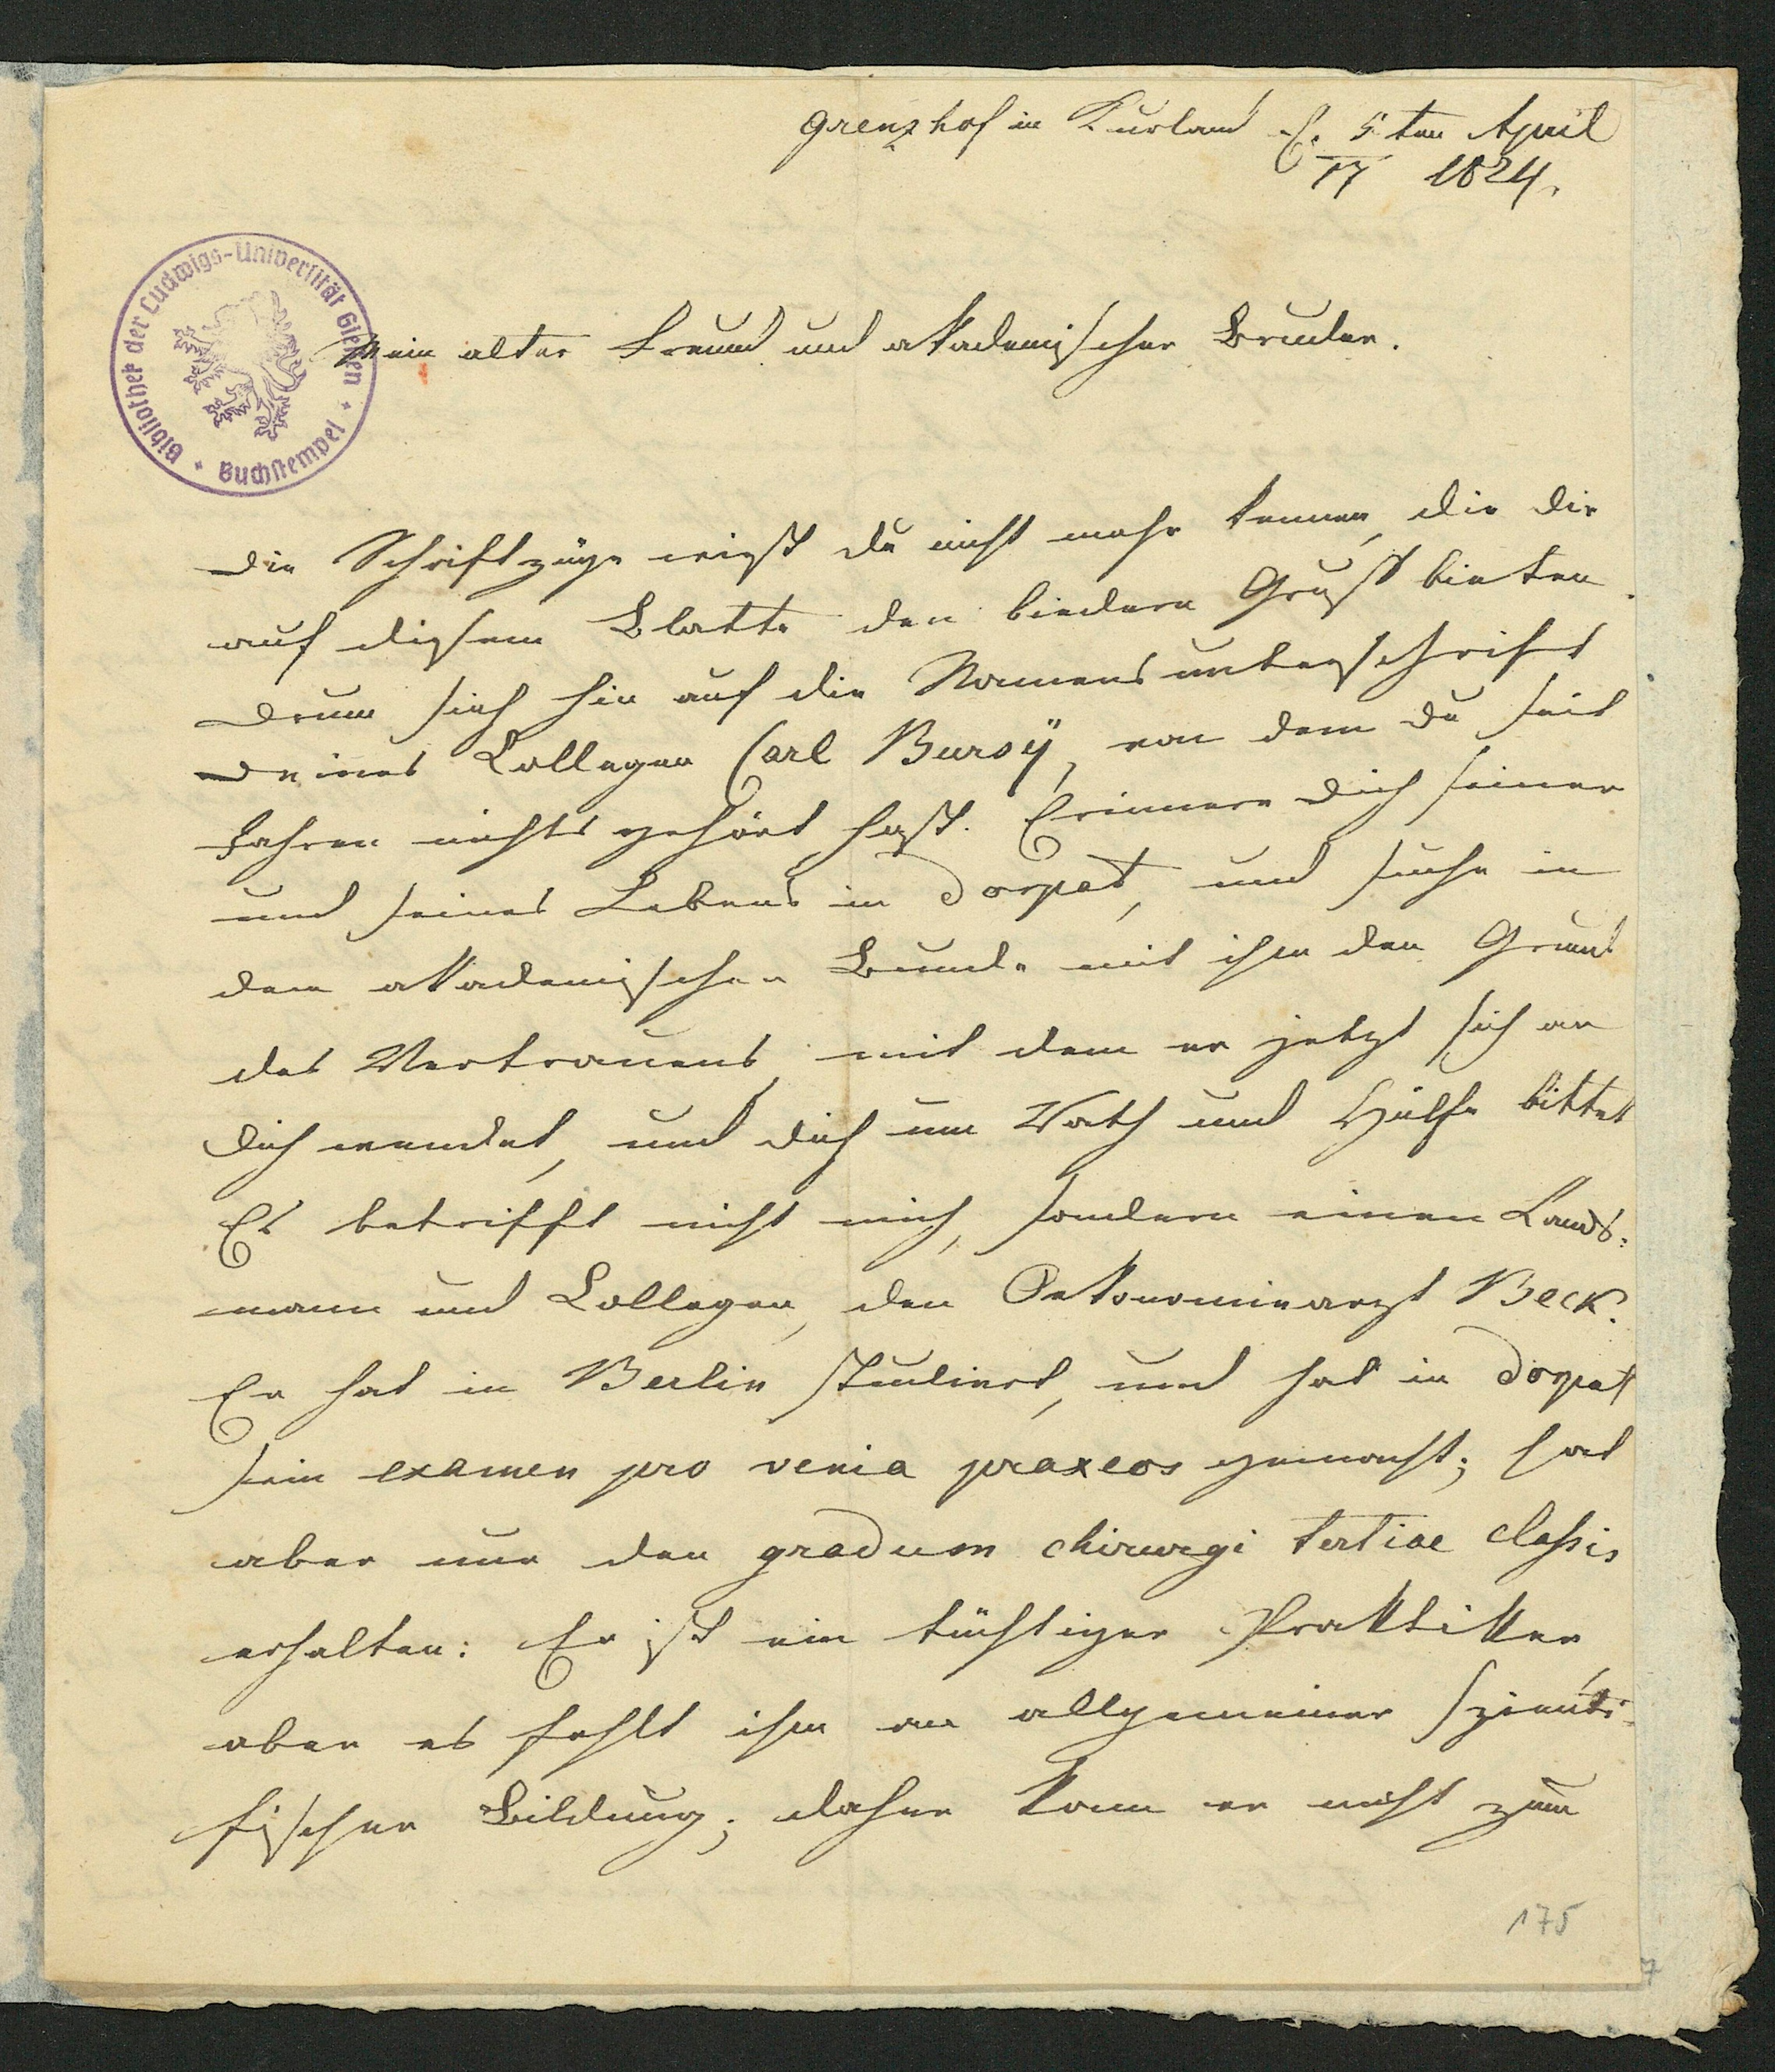 Grenzhof in Kurland d. 5ten April
17 1824.
Bibliothek der Ludwigs-Universität Gießen
Buchstempel
Mein alter Freund und akademischer Bruder.
Die Schriftzüge wirst Du nicht mehr kennen, die Dir
auf diesem Blatte den biedern Gruß bieten.
Drum sieh hin auf die Namensunterschrift
Deines Collegen Carl Bursÿ, von dem Du seit
Jahren nichts gehört hast. Erinnere Dich seiner
und seines Lebens in Dorpat, und suche in
dem akademischen Bunde mit ihm den Grund
des Vertrauens, mit dem er jetzt sich an
Dich wendet, und Dich um Rath und Hülfe bittet
Es betrifft nicht mich, sondern einen Lands-
mann und Collegen, den Oekonomiearzt Beck.
Er hat in Berlin studiert, und hat in Dorpat
sein examen pro venia praxeos gemacht; hat
aber nur den gradum chirurgi tertiae classis
erhalten: Er ist ein tüchtiger Praktiker,
aber es fehlt ihm an allgemeiner szienti-
fischer Bildung; daher kann er nicht zum
175
7